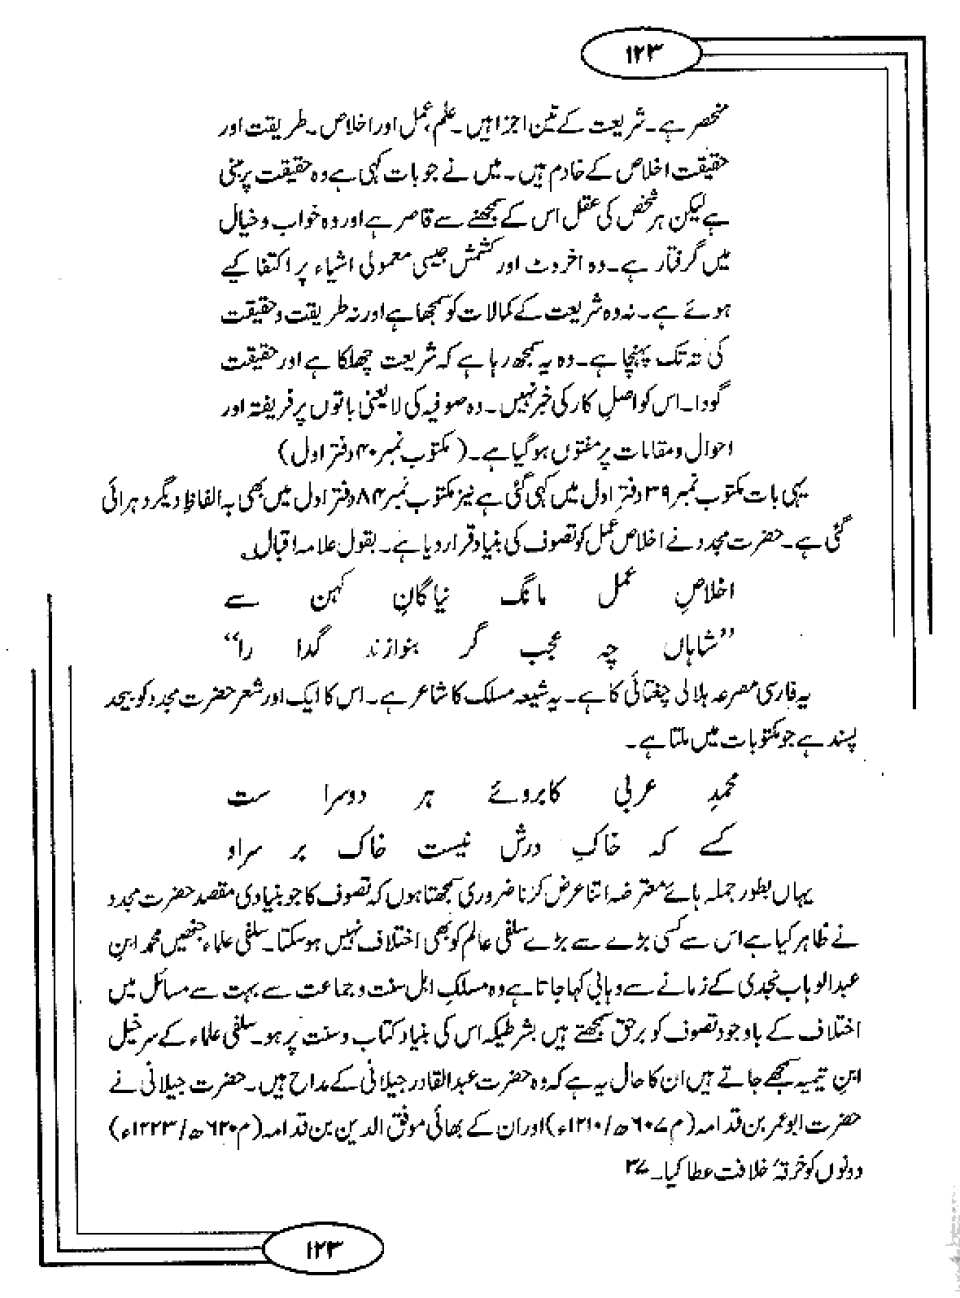 ۱۲۳
منحصر ہے۔ شریعت کے تین اجزا ہیں۔ علم، عمل اور اخلاص۔ طریقت اور
حقیقت اخلاص کے خادم ہیں۔ میں نے جو بات کہی ہے وہ حقیقت پر مبنی
ہے لیکن ہر شخص کی عقل اس کے سمجھنے سے قاصر ہے اور وہ خواب و خیال
میں گرفتار ہے۔ وہ اخروٹ اور کشمش جیسی معمولی اشیاء پر اکتفا کیے
ہوئے ہے۔ نہ وہ شریعت کے کمالات کو سمجھا ہے اور نہ طریقت و حقیقت
کی تہ تک پہنچا ہے۔ وہ یہ سمجھ رہا ہے کہ شریعت چھلکا ہے اور حقیقت
گودا۔ اس کو اصلِ کار کی خبر نہیں۔ وہ صوفیہ کی لایعنی باتوں پر فریفتہ اور
احوال و مقامات پر مفتوں ہو گیا ہے۔ (مکتوب نمبر ۴۰ دفتر اول)
یہی بات مکتوب نمبر ۳۹ دفترِ اول میں کہی گئی ہے نیز مکتوب نمبر ۸۴ دفتر اول میں بھی بہ الفاظِ دیگر دہرائی
گئی ہے۔ حضرت مجدد نے اخلاصِ عمل کو تصوف کی بنیاد قرار دیا ہے۔ بقول علامہ اقبال
اخلاصِ عمل مانگ نیاگانِ کہن سے
”شاہاں چہ عجب گر بنوازند گدا را“
یہ فارسی مصرعہ ہلالی چغتائی کا ہے۔ یہ شیعہ مسلک کا شاعر ہے۔ اس کا ایک اور شعر حضرت مجدد کو بیحد
پسند ہے جو مکتوبات میں ملتا ہے۔
محمدِ عربی کابروئے ہر دوسرا ست
کسے کہ خاکِ درش نیست خاک بر سر او
یہاں بطور جملہ ہائے معترضہ اتنا عرض کرنا ضروری سمجھتا ہوں کہ تصوف کا جو بنیادی مقصد حضرت مجدد
نے ظاہر کیا ہے اس سے کسی بڑے سے بڑے سلفی عالم کو بھی اختلاف نہیں ہو سکتا۔ سلفی علماء جنھیں محمد ابن
عبدالوہاب نجدی کے زمانے سے وہابی کہا جاتا ہے وہ مسلکِ اہل سنت و جماعت سے بہت سے مسائل میں
اختلاف کے باوجود تصوف کو برحق سمجھتے ہیں بشرطیکہ اس کی بنیاد کتاب و سنت پر ہو۔ سلفی علماء کے سرخیل
ابنِ تیمیہ سمجھے جاتے ہیں ان کا حال یہ ہے کہ وہ حضرت عبدالقادر جیلانی کے مداح ہیں۔ حضرت جیلانی نے
حضرت ابو عمر بن قدامہ (م ۶۰۷ھ/۱۲۱۰ء) اور ان کے بھائی موفق الدین بن قدامہ (م ۶۲۰ھ/۱۲۲۳ء)
دونوں کو خرقۂ خلافت عطا کیا۔ ۳۷
۱۲۳